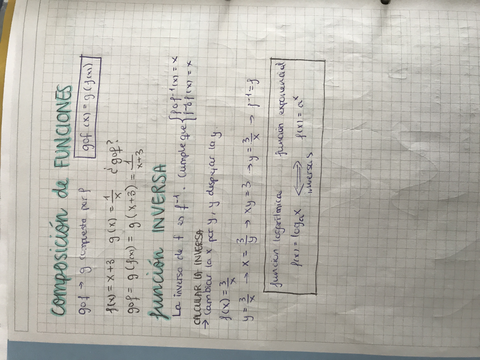 COMPOSICIÓN de FUNCIONES
gof → g compuesta por f
gof (x) = g (f(x))
f(x) = x+3 g(x) = 1/x ¿gof?
gof = g (f(x)) = g (x+3) = 1/(x+3)
función INVERSA
La inversa de f es f⁻¹. Cumple que { f o f⁻¹(x) = x
f⁻¹o f(x) = x
CALCULAR LA INVERSA
→ Cambiar la x por y, y despejar la y
f(x) = 3/x
y = 3/x → x = 3/y → xy = 3 → y = 3/x → f⁻¹ = f
función logarítmica función exponencial
f(x) = logₐx ⟺ f(x) = aˣ
inversas